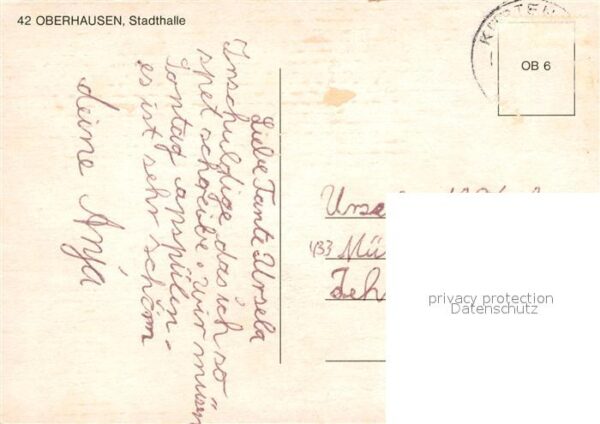 42 OBERHAUSEN, Stadthalle
OB 6
Liebe Tante Ursela
Inschuldige das ich so
spet schreibe. Wir müsen
Sontag apspülen.
es ist sehr schöm
deine Anja
Urse
433 Mü
privacy protection
Datenschutz